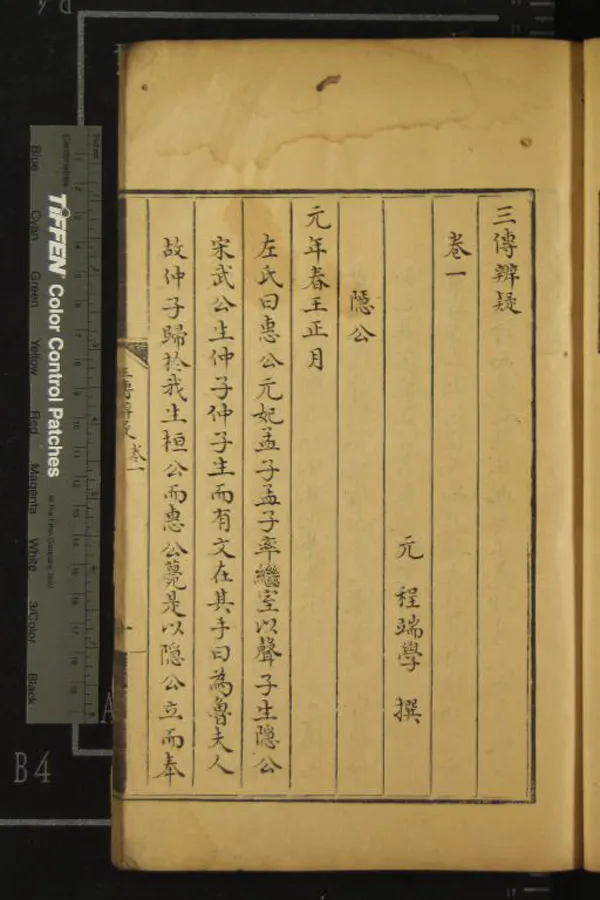 三傳辨疑
卷一
元 程端學 撰
隱公
元年春王正月
左氏曰惠公元妃孟子孟子卒繼室以聲子生隱公
宋武公生仲子仲子生而有文在其手曰為魯夫人
故仲子歸於我生桓公而惠公薨是以隱公立而奉
三傳辨疑 卷一
一
TIFFEN Color Control Patches
Blue Cyan Green Yellow Red Magenta White 3/Color Black
B4